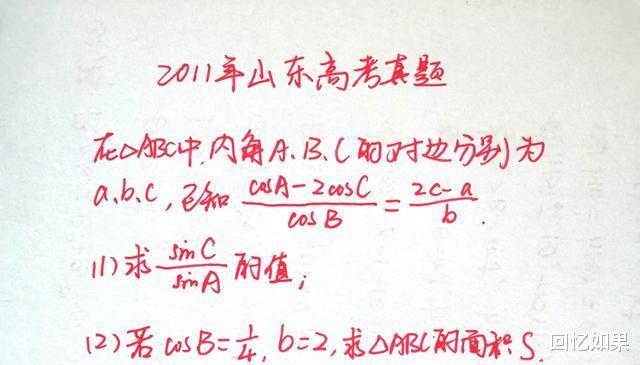 2011年山东高考真题
在△ABC中,内角A.B.C的对边分别为
a.b.c,已知 (cosA-2cosC)/cosB = (2c-a)/b.
(1)求 sinC/sinA 的值;
(2)若cosB=1/4,b=2,求△ABC的面积S.
回忆如果